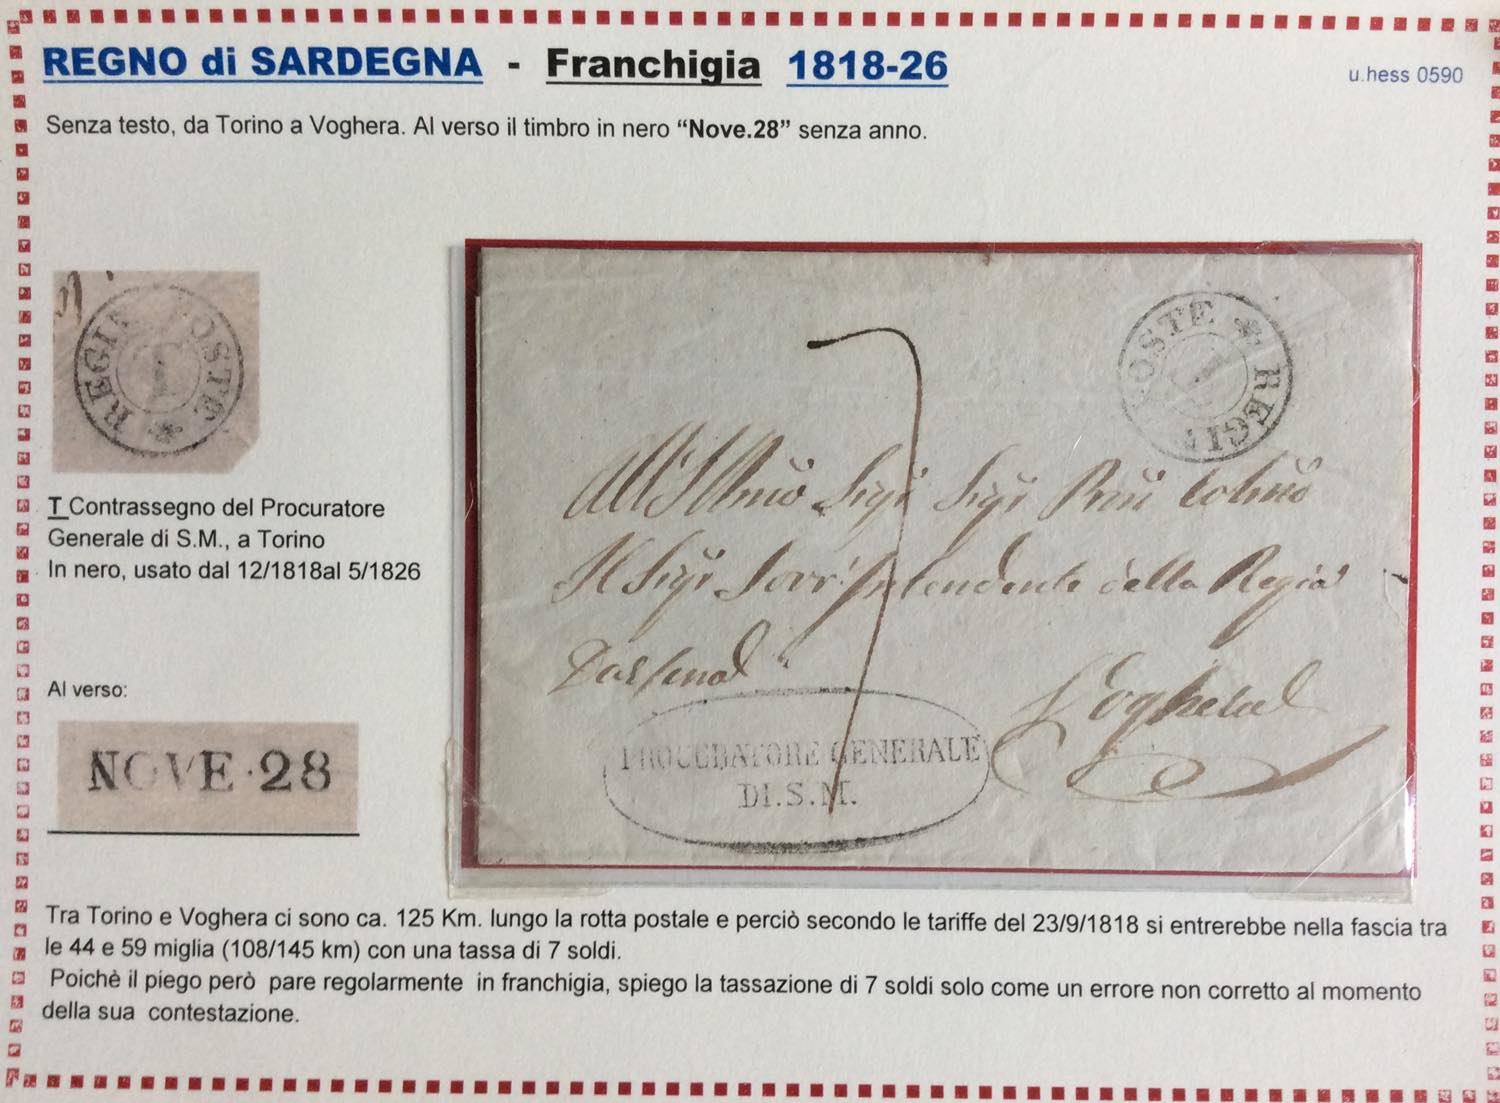 REGNO di SARDEGNA - Franchigia 1818-26
u.hess 0590
Senza testo, da Torino a Voghera. Al verso il timbro in nero “Nove.28” senza anno.
REGIE POSTE * T
T Contrassegno del Procuratore
Generale di S.M., a Torino
In nero, usato dal 12/1818al 5/1826
Al verso:
NOVE·28
REGIE POSTE *
7
All'Illmo Sigr Sigr Pron Colmo
Il Sigr Sovr'Intendente della Regia
Voghera
PROCURATORE GENERALE
DI.S.M.
Tra Torino e Voghera ci sono ca. 125 Km. lungo la rotta postale e perciò secondo le tariffe del 23/9/1818 si entrerebbe nella fascia tra
le 44 e 59 miglia (108/145 km) con una tassa di 7 soldi.
Poichè il piego però pare regolarmente in franchigia, spiego la tassazione di 7 soldi solo come un errore non corretto al momento
della sua contestazione.